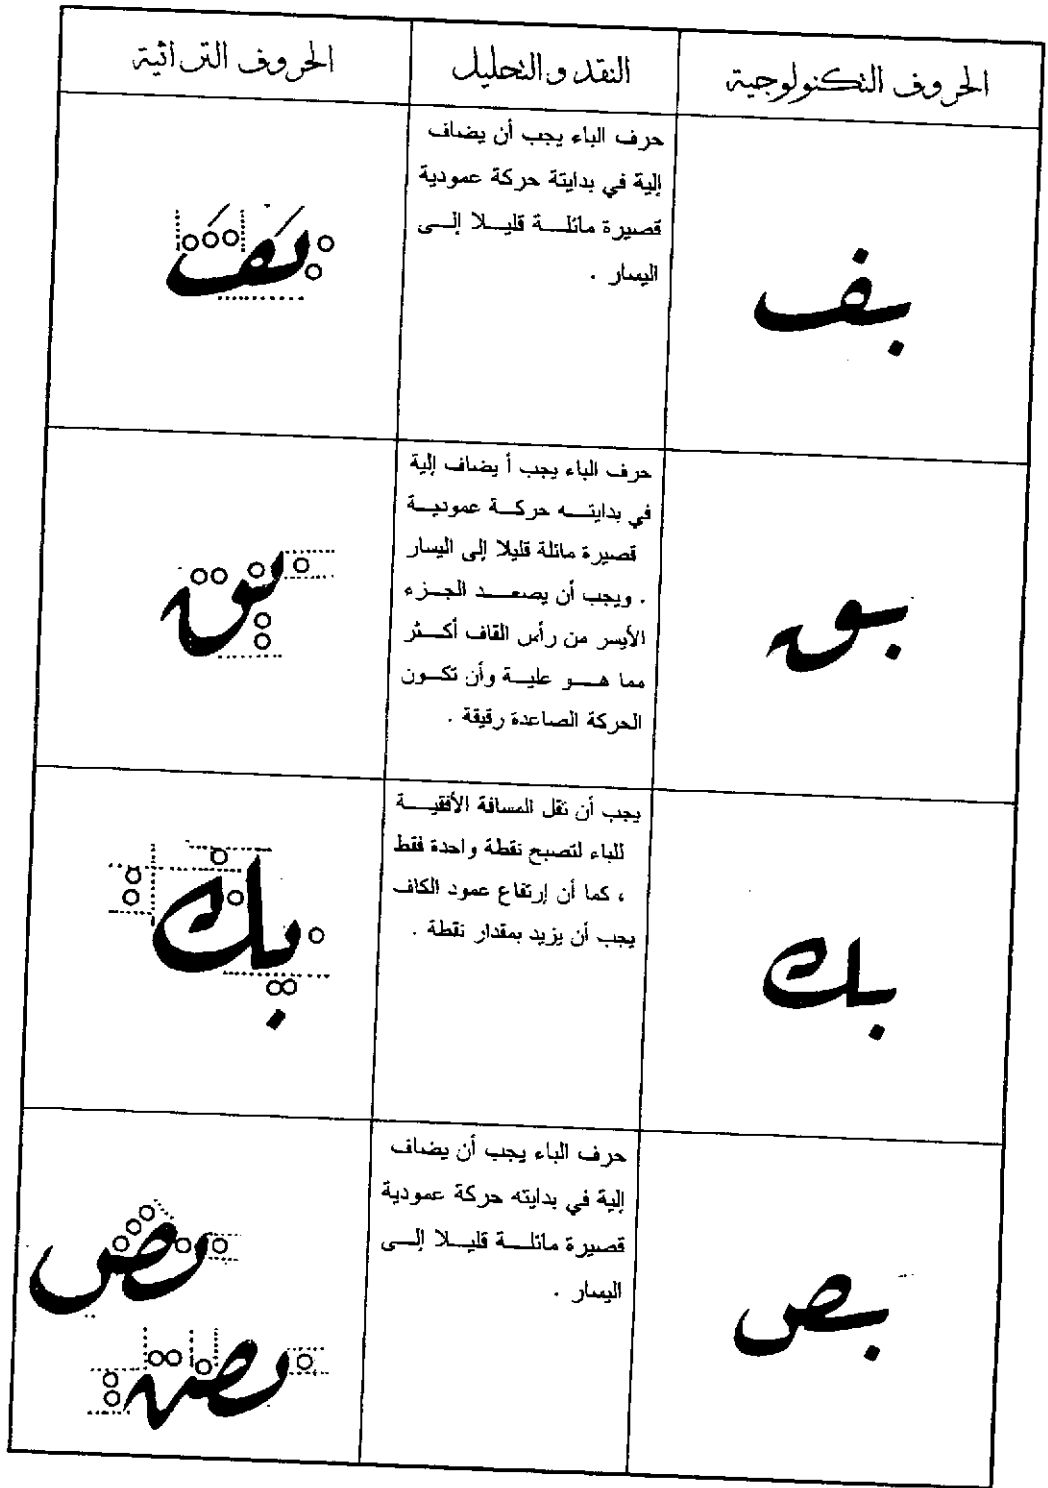 الحروف التكنولوجية
النقد والتحليل
الحروف التراثية
بف
حرف الباء يجب أن يضاف
إلية في بدايتة حركة عمودية
قصيرة مائلة قليلا إلى
اليسار .
بق
حرف الباء يجب أ يضاف إلية
في بدايته حركة عمودية
قصيرة مائلة قليلا إلى اليسار
. ويجب أن يصعد الجزء
الأيسر من رأس القاف أكثر
مما هو علية وأن تكون
الحركة الصاعدة رقيقة .
بك
يجب أن تقل المسافة الأفقية
للباء لتصبح نقطة واحدة فقط
، كما أن إرتفاع عمود الكاف
يجب أن يزيد بمقدار نقطة .
بك
بص
حرف الباء يجب أن يضاف
إلية في بدايته حركة عمودية
قصيرة مائلة قليلا إلى
اليسار .